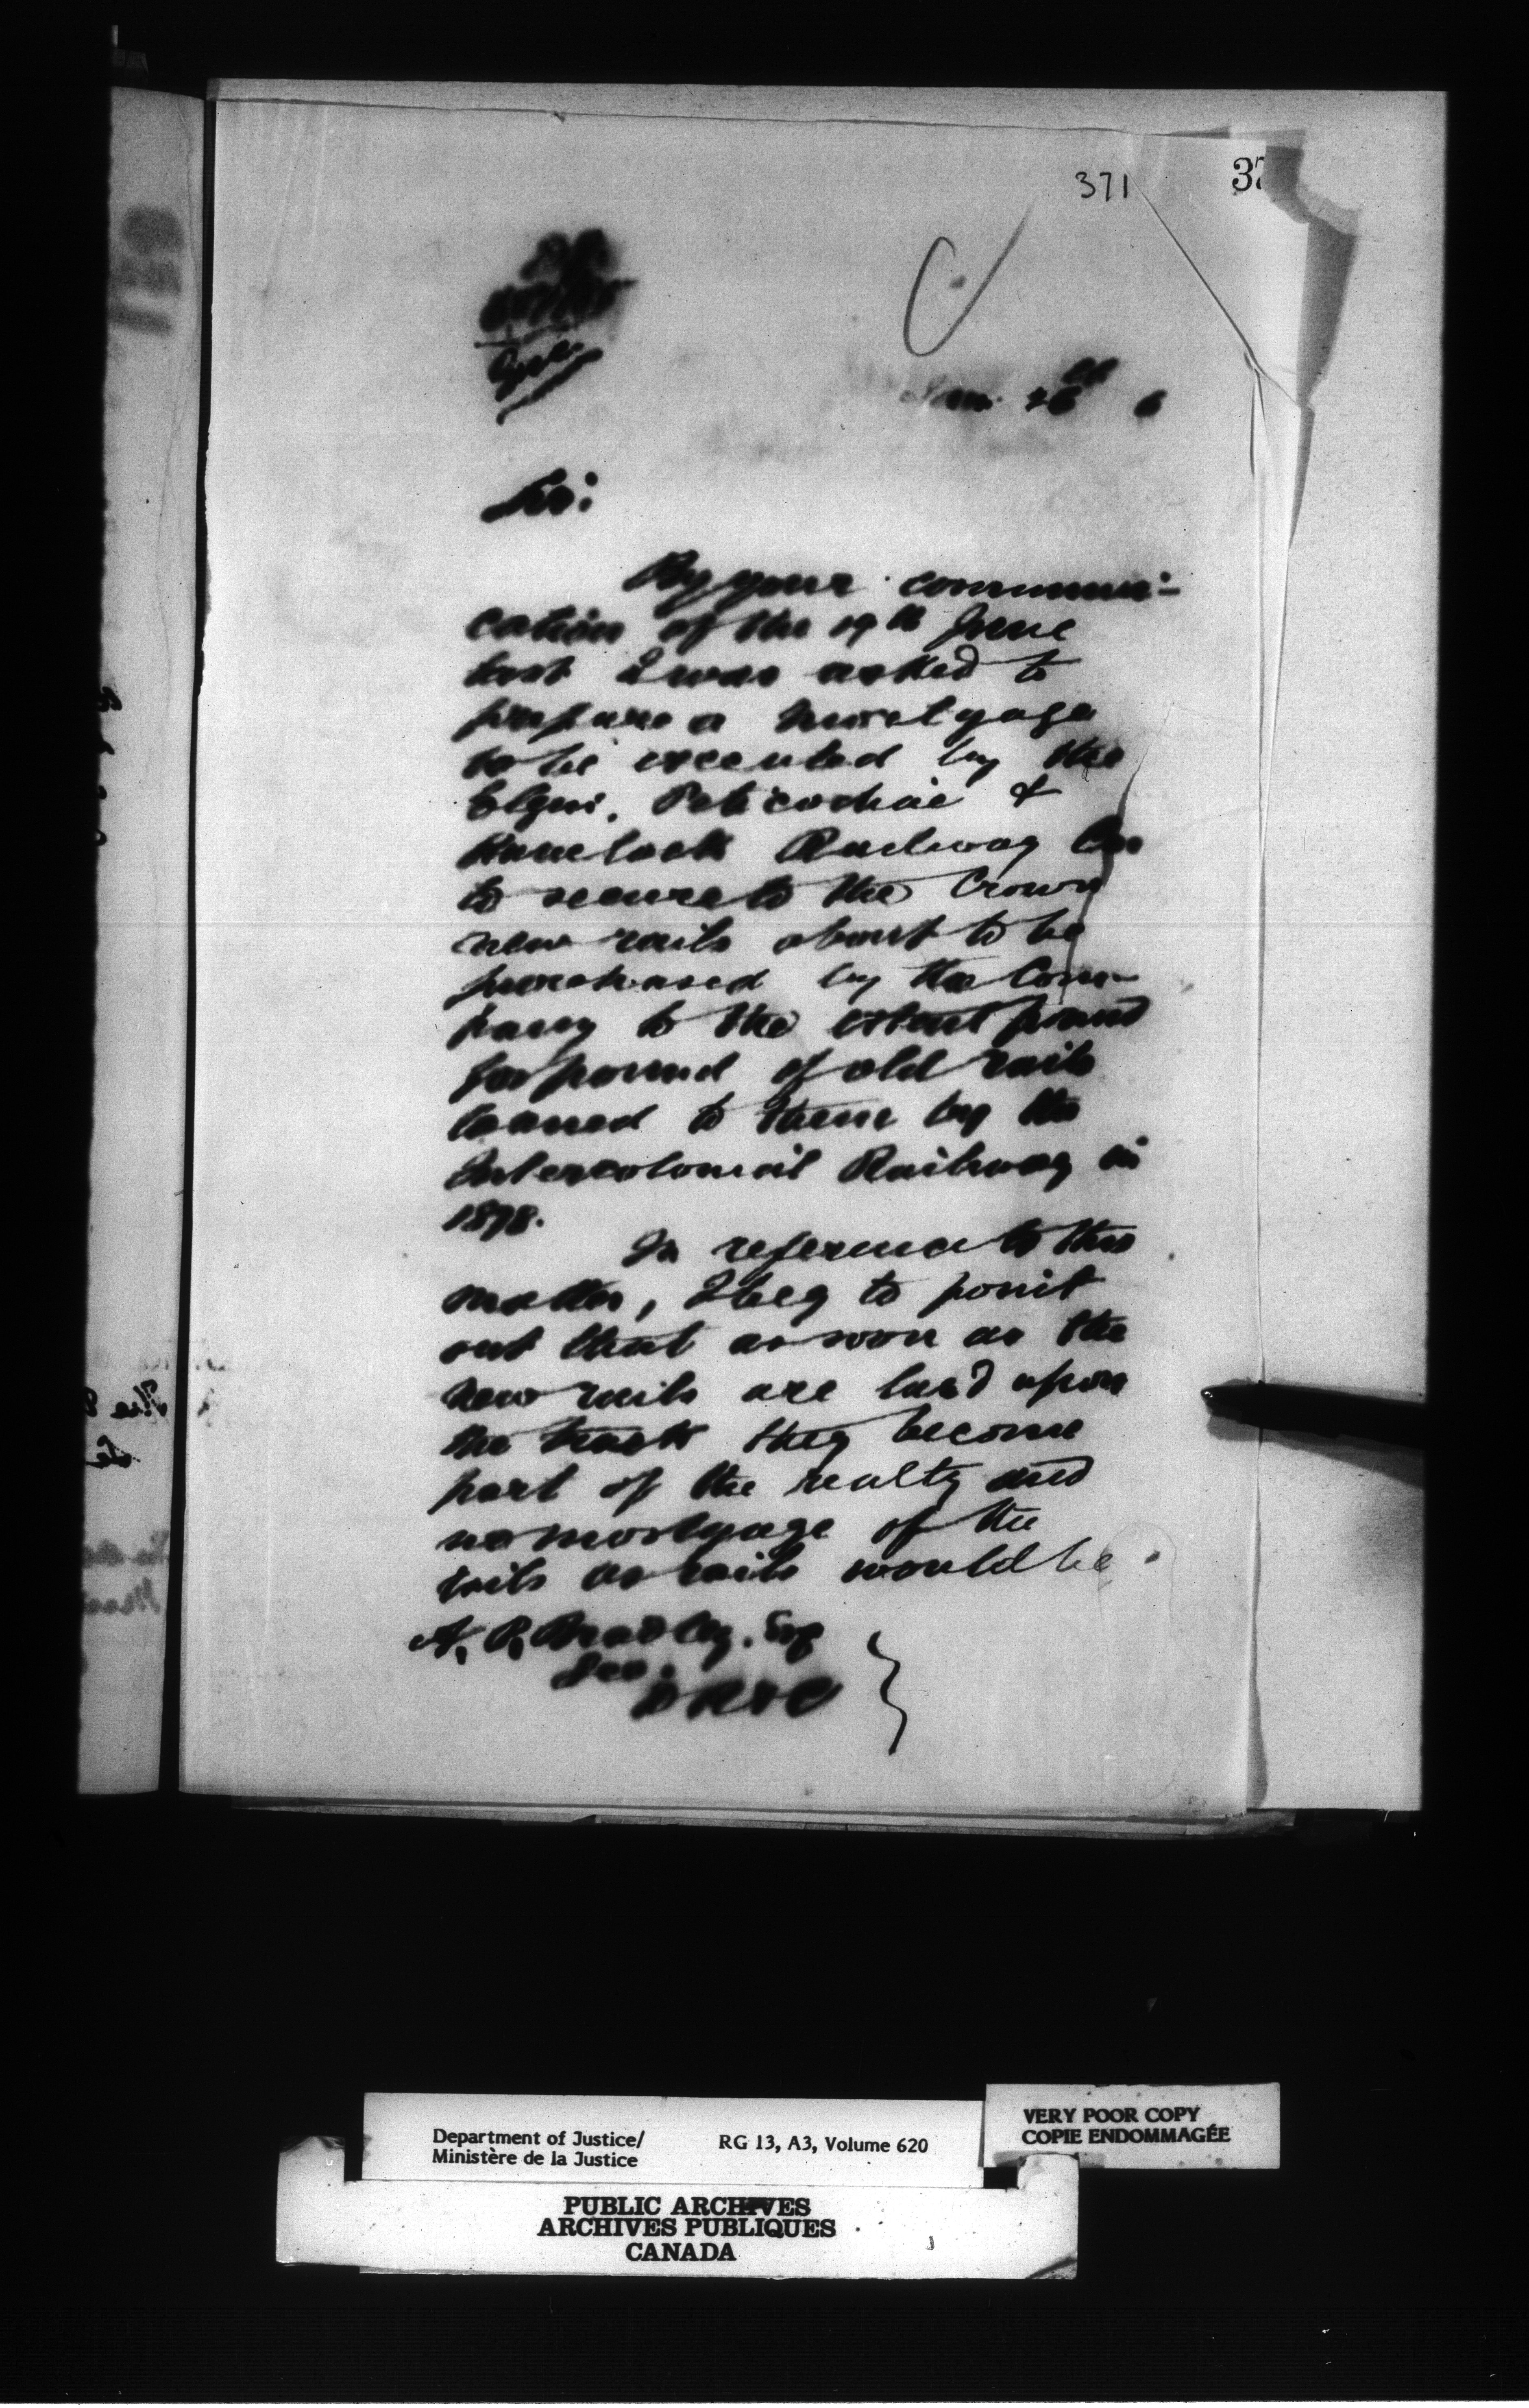 371
37
Jan. 26th 6
Sir:
By your communi-
cation of the 19th June
last I was asked to
prepare a mortgage
to be executed by the
Elgin, Peticodiac &
Havelock Railway Co
to secure to the Crown
new rails about to be
purchased by the Com-
pany to the extent pound
for pound of old rails
loaned to them by the
Intercolonial Railway in
1878.
In reference to this
matter, I beg to point
out that as soon as the
new rails are laid upon
the track they become
part of the realty and
no mortgage of the
rails as rails would be
A. P. Bradley, Esq
Sec.
D R & C
Department of Justice/
Ministère de la Justice
RG 13, A3, Volume 620
VERY POOR COPY
COPIE ENDOMMAGÉE
PUBLIC ARCHIVES
ARCHIVES PUBLIQUES
CANADA